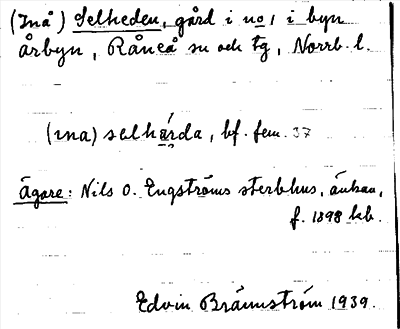 (Inå) Selheden, gård i no 1 i byn
Årbyn, Råneå sn och tg, Norrb. l.
(ına) selhärda, bf. fem. 37
Ägare: Nils O. Engströms sterbhus, änkan,
f. 1898 kb.
Edvin Brännström 1939.